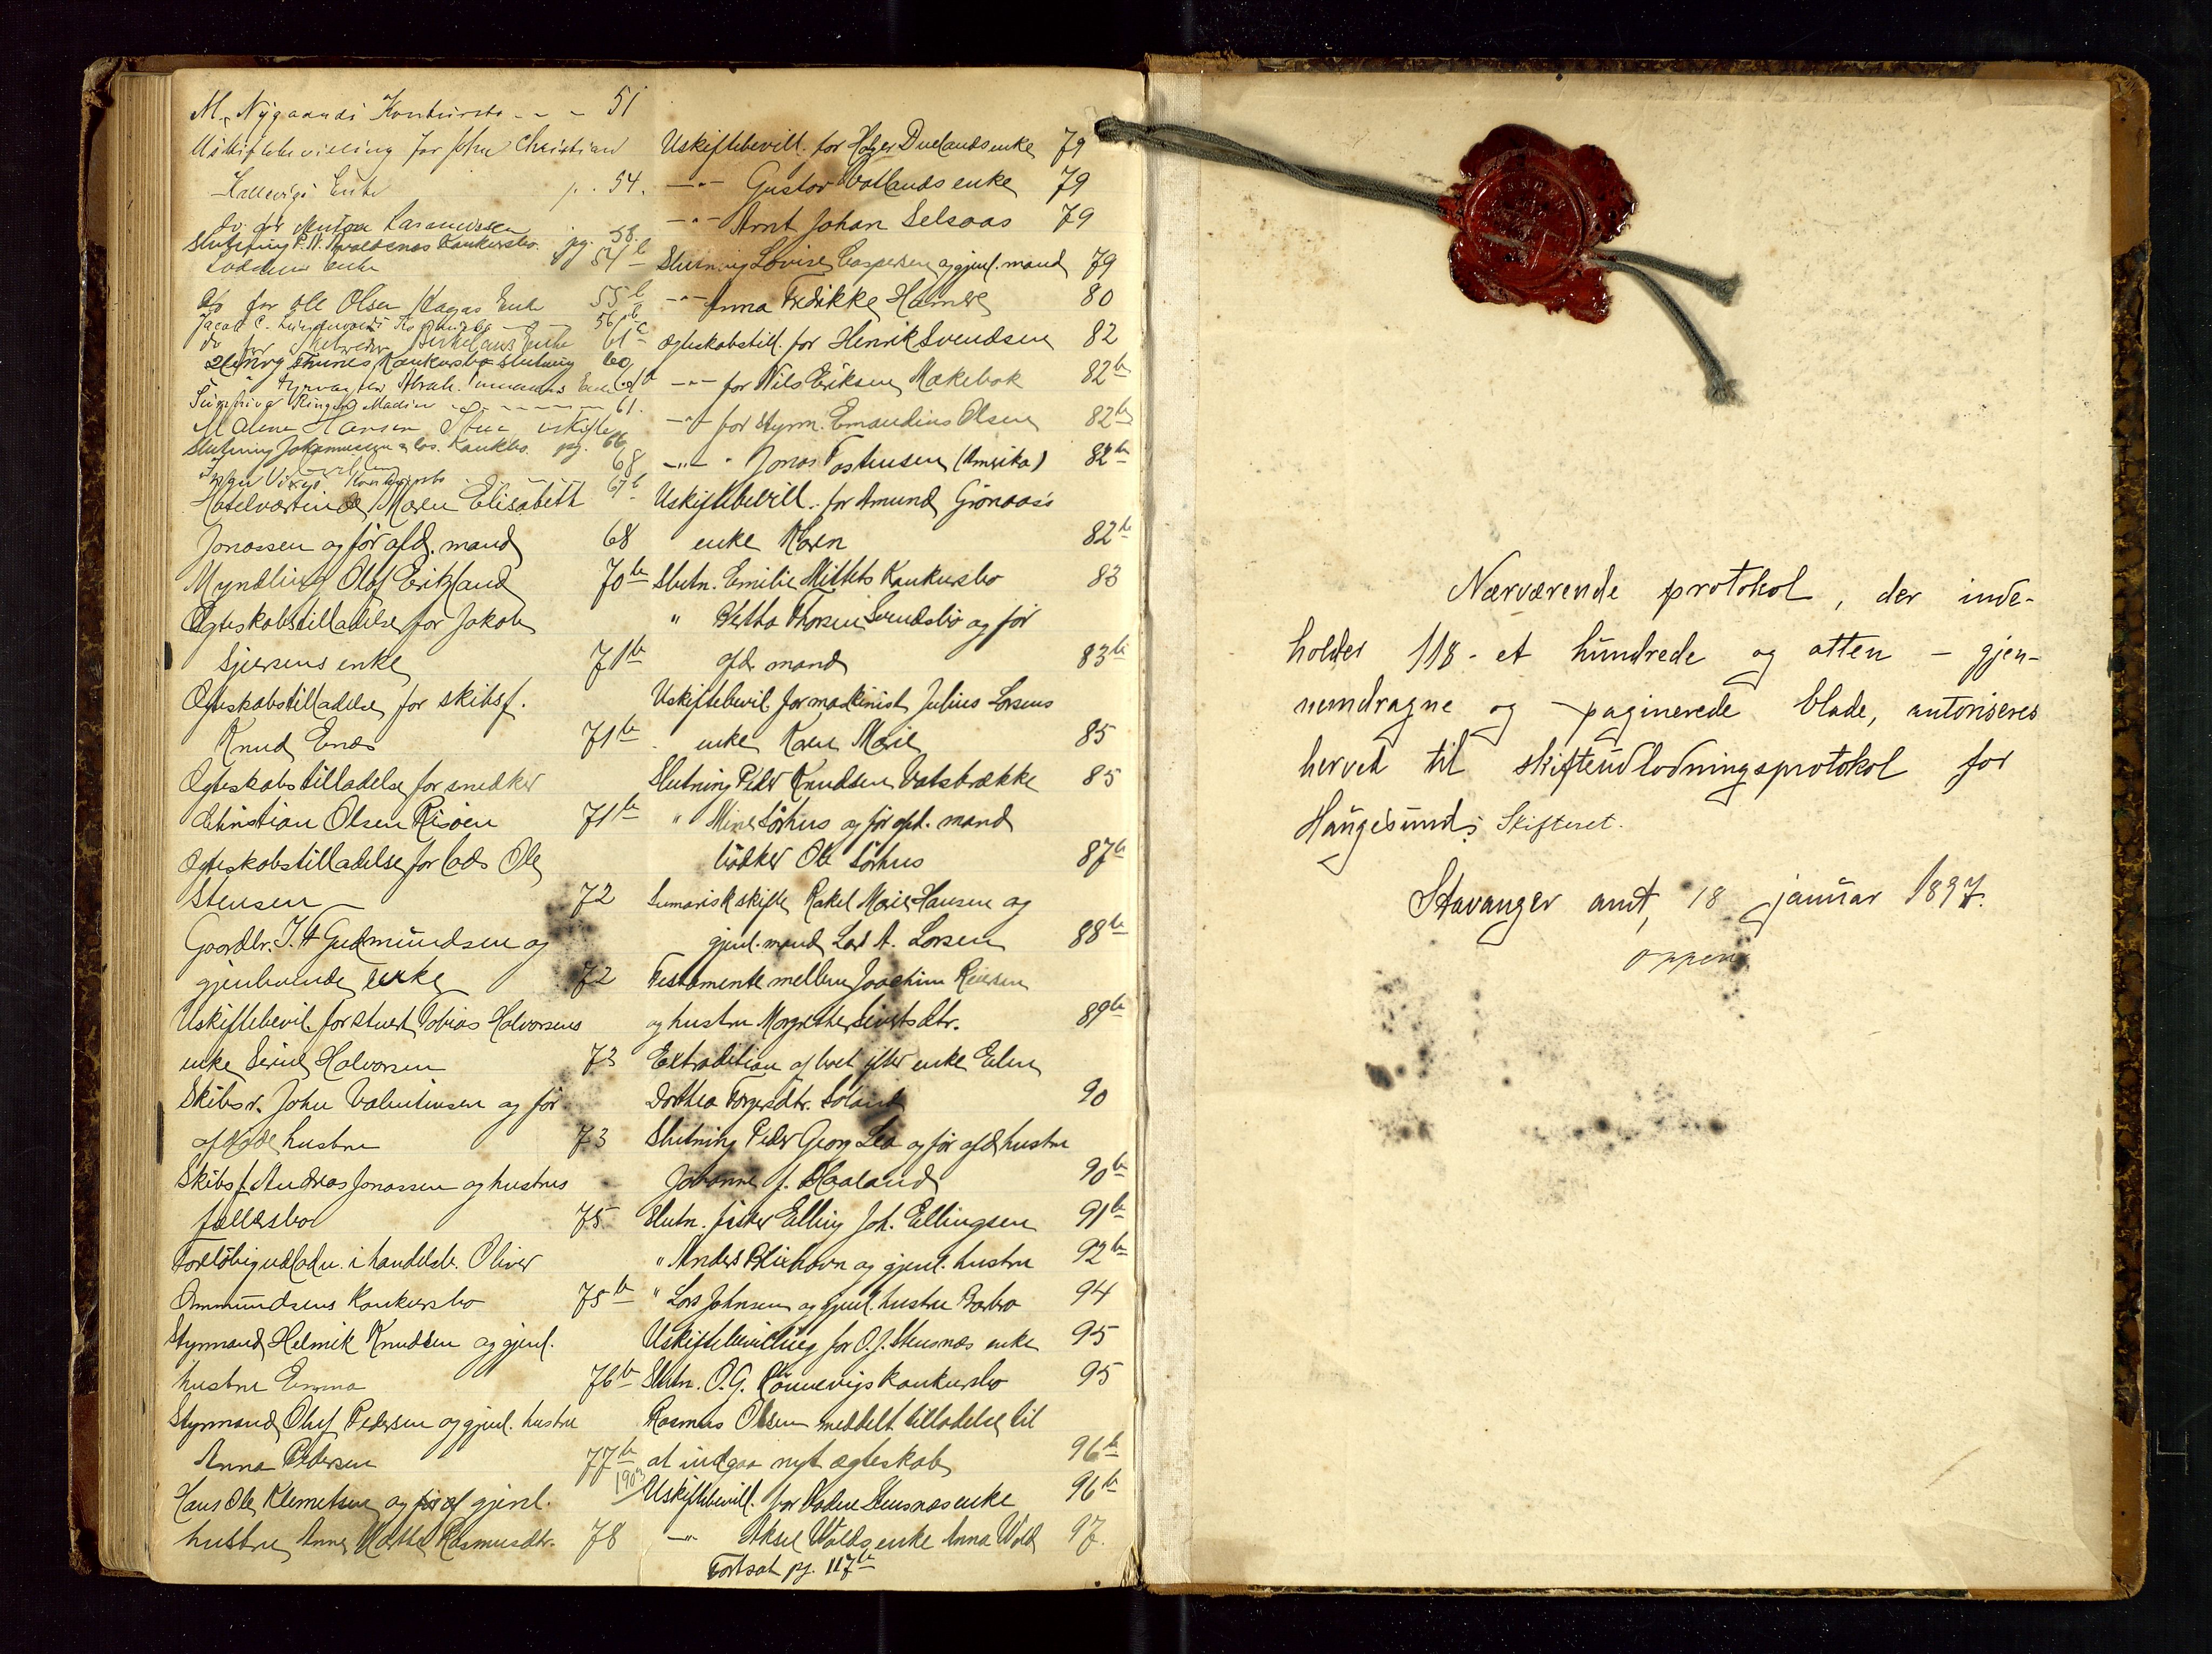 M. Nygaards Konkursbo - - - 51
Uskiftebevilling for John Christian
Hallevigs Enke p. 54.
do. for Rasmussen
Slutning P. N. Konkursbo. pg. 54 b
Enke 58.
do for Ole Olsen Hagas Enke 55 b
Jacob C. 56 b
do for Enke 61
Konkursbo Slutning 60
61.
Malene Hansen uskifte
Slutning Johannessen & Cos. Konkbo. pg. 66
68
67 b
Hotelværtinde Maren Elisabeth
Jonassen og før afd. mand 68
Myndling Olaf Eritzland 70 b
Ægteskabstilladelse for Jakob
Sjursens enke 71 b
Ægteskabstilladelse for skibsf.
Knud Enes 71 b
Ægteskabstilladelse for snedker
Christian Olsen Risøen 71 b
Ægteskabstilladelse for lods Ole
Stensen 72
Gaardbr. J. H Gudmundsen og
gjenlevende enke 72
Uskiftebevil. for stuert Tobias Halvorsens
enke Serine Halvorsen 73
Skibsr. John Valentinsen og før
afdøde hustru 73
Skibsf. Andreas Jonassen og hustrus
fællesbo 75
Foreløbig udlodn. i handelsb. Oliver
Ommundsens Konkursbo 75 b
Styrmand Helmik Knudsen og gjenl.
hustru Emma 76 b
Styrmand Oluf Pedersen og gjenl. hustru
Anna Pedersen 77 b
Hans Ole Klemetsen og før af gjenl.
hustru Anne Marthe Rasmusdtr. 78
Uskiftebevill. for Holger Duelands enke 79
-"- Gustav Vatlands enke 79
-"- Arnt Johan Selsaas 79
Slutning Lovise Caspersen og gjenl. mand 79
-"- Anna Fredrikke Hamre 80
Ægteskabstill. for Henrik Svendsen 82
-"- for Nils Eriksen Makebak 82 b
-"- for Styrm. Emandius Olsen 82 b
-"- " Jonas Tostensen (Amerika) 82 b
Uskiftebevill. for Amund Grønaas's
enke Karen 82 b
Slutn. Emilie Mittets Konkursbo 83
" Bertha Thorsen Svendsbø og før
afd. mand 83 b
Uskiftebevil. for maskinist Julius Larsens
enke Karen Marie 85
Slutning Peder Knudsen Vatsbrække 85
" Mine Sørhus og før afd. mand
bødker Ole Sørhus 87 b
Sumarisk skifte Rakel Marie Hansen og
gjenl. mand Lars A. Larsen 88 b
Testamente mellem Joachim Reiersen
og hustru Margrethe Sivertsdtr. 89 b
Extradition af boet efter enke Elen
Dorthea Torgersdtr. Søland 90
Slutning Peder Georg Lea og før afd hustru
Johanne f. Haaland 90 b
Slutn. fisker Elling Joh. Ellingsen 91 b
" Anders Bleihavn og gjenl. hustru 92 b
" Lars Johnsen og gjenl. hustru Barbro 94
Uskiftebevilling for O. J. Stensnæs enke 95
Slutn. O. G. Rønnevigs konkursbo 95
Rasmus Olsen meddelt tilladelse til
at indgaa nyt ægteskab 96 b
1903 Uskiftebevill. for Stensnæs enke 96 b
-"- Aksel Wolds enke Anna Wold 97.
Fortsat pg. 117 b
Nærværende protokol, der inde-
holder 118 - et hundrede og atten - gjen-
nemdragne og paginerede blade, autoriseres
herved til skifteudlodningsprotokol for
Haugesunds Skifteret.
Stavanger amt, 18 januar 1897.
Oppen